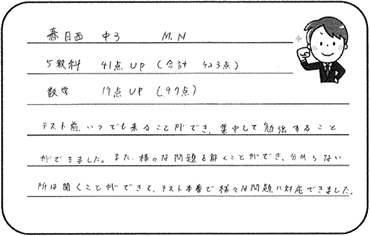 春日西 中3 M.N
5教科 41点UP (合計 423点)
数学 19点UP (97点)
テスト前、いつでも来ることができ、集中して勉強すること
ができました。また、様々な問題を解くことができ、分からない
所は聞くことができて、テスト本番で様々な問題に対応できました。